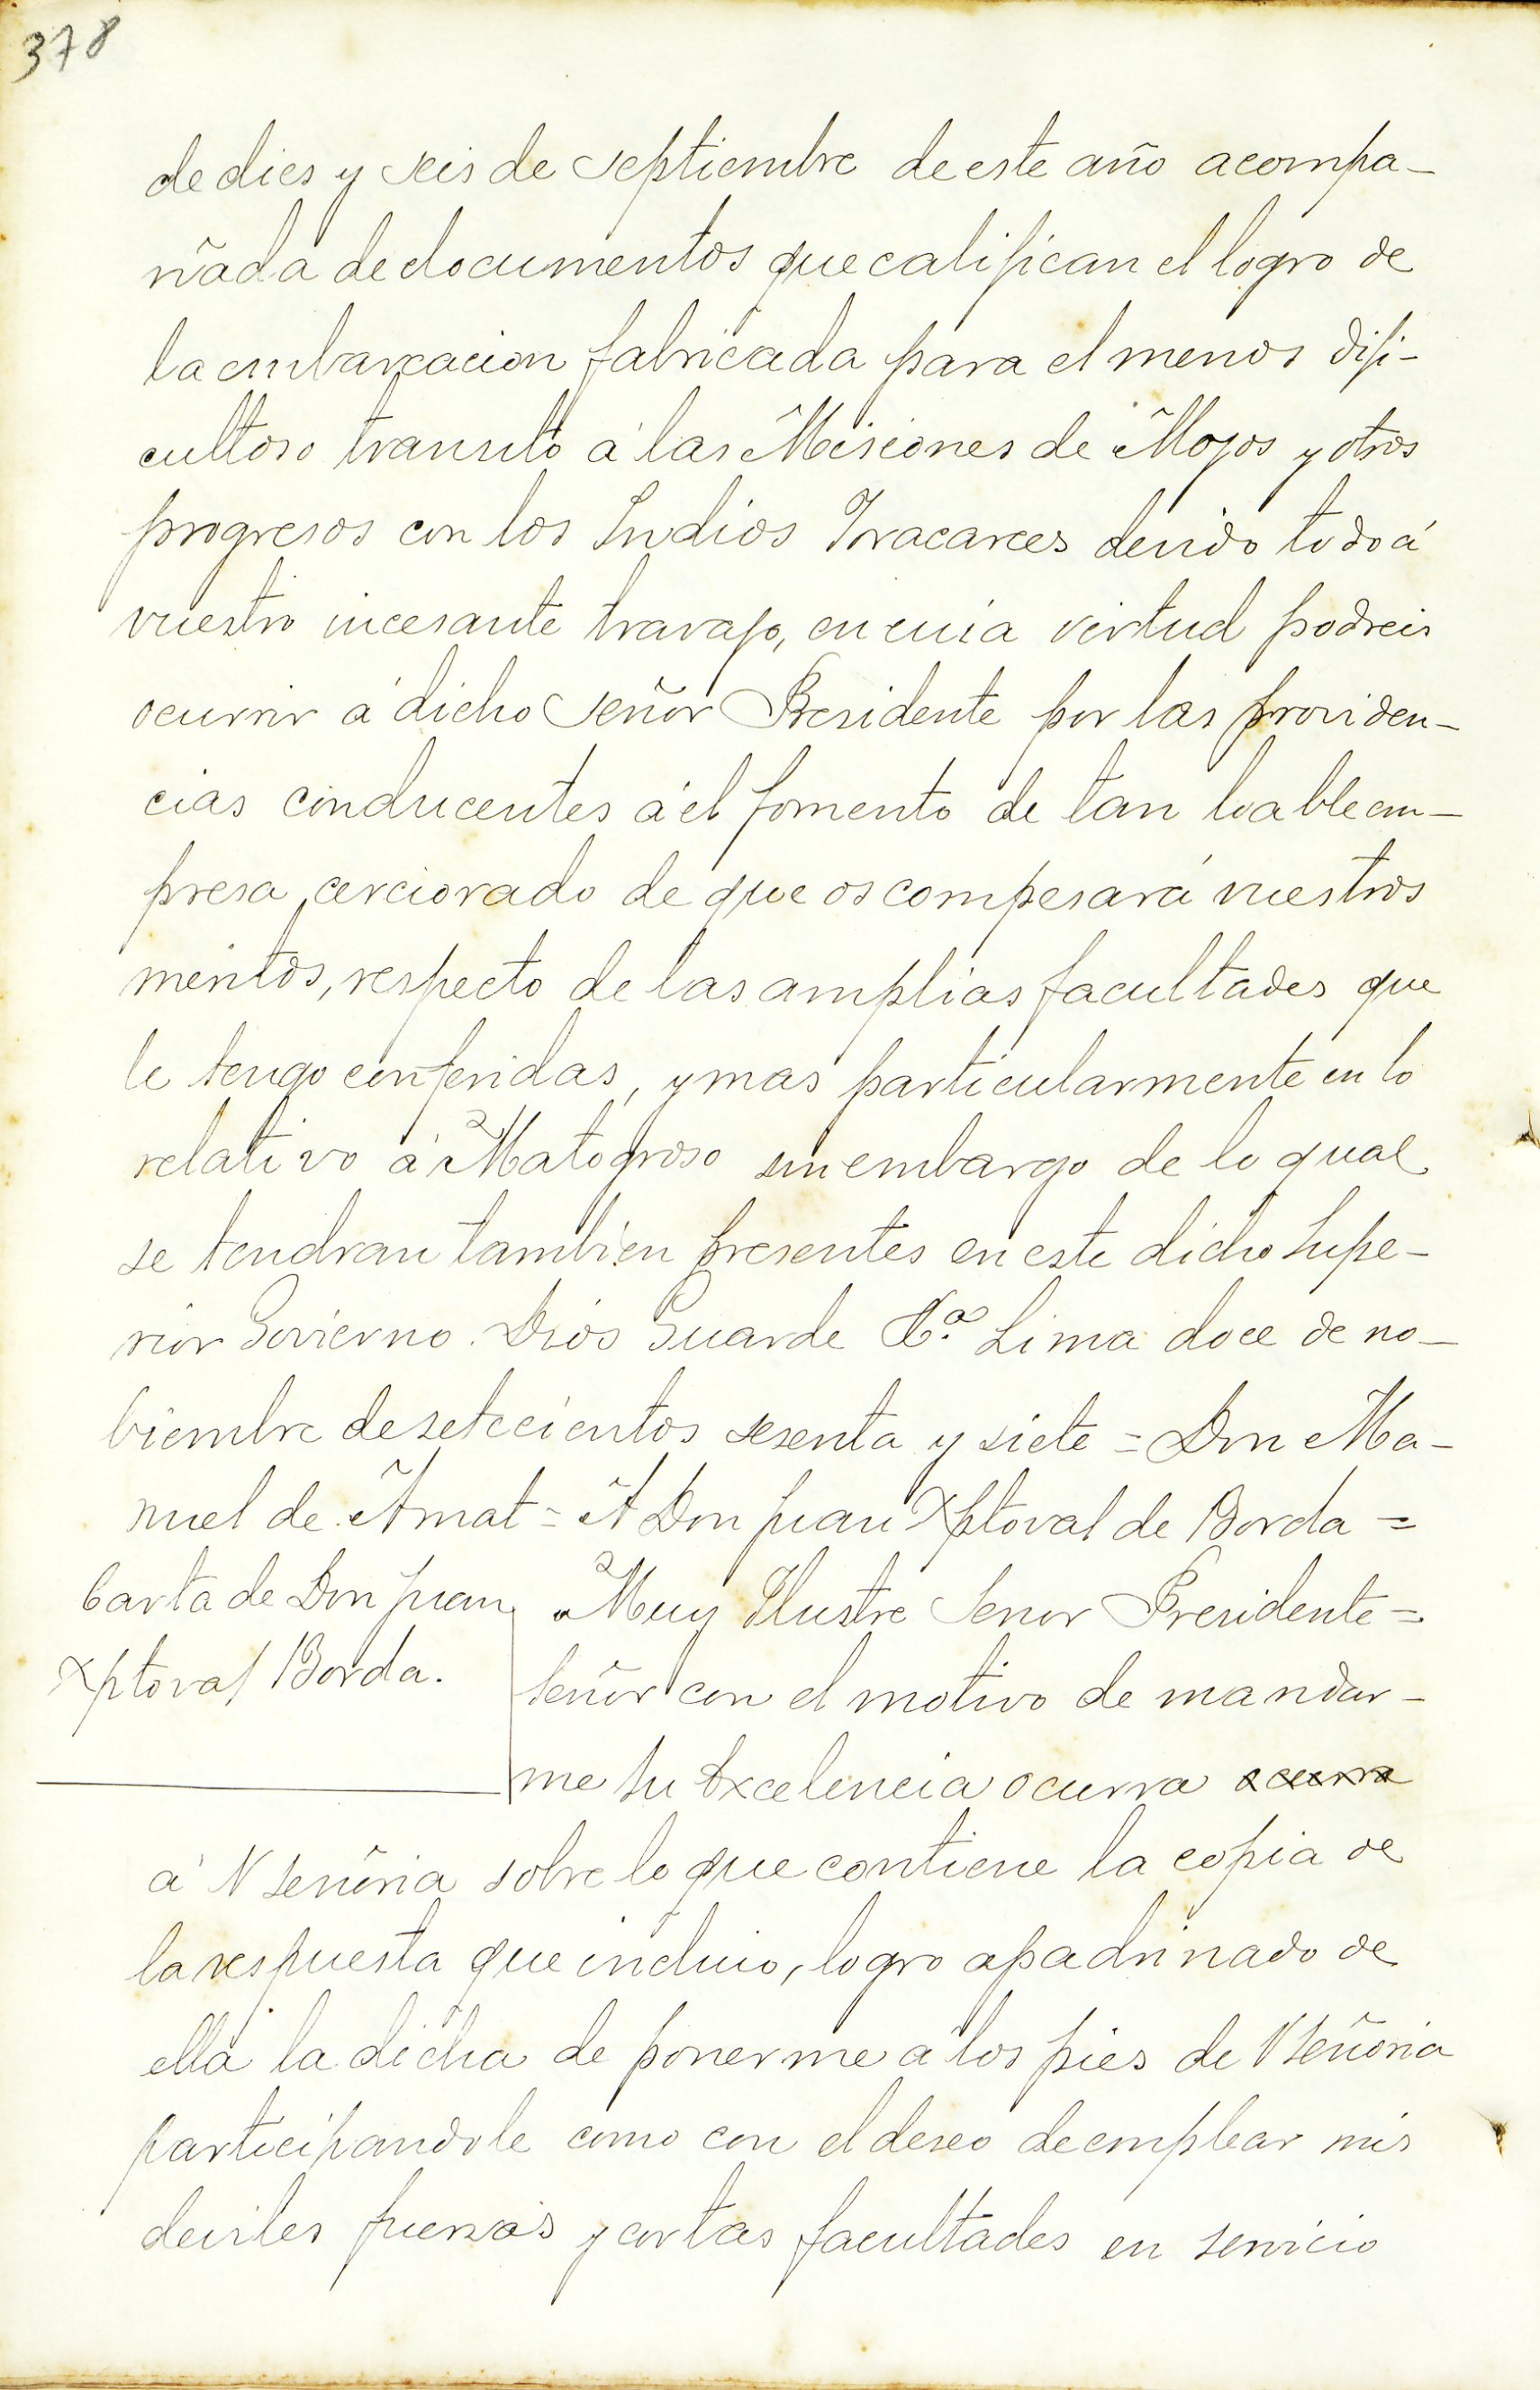 378
de dies y seis de septiembre de este año acompa-
ñada de documentos que califican el logro de
la embarcacion fabricada para el menos difi-
cultoso transito á las Misiones de Mojos y otros
progresos con los Indios Iuracarees devido todo á
vuestro incesante travajo, en cuia virtud podreis
ocurrir á dicho señor Presidente por las providen-
cias conducentes á el fomento de tan loable em-
presa, cerciorado de que os compesará vuestros
meritos, respecto de las amplias facultades que
le tengo conferidas, y mas particularmente en lo
relativo á Matogroso sin embargo de lo qual
se tendran tambien presentes en este dicho Supe-
rior Govierno. Dios Guarde Ca. Lima doce de no-
biembre de setecientos sesenta y siete = Don Ma-
nuel de Amat = A Don Juan Xptoval de Borda =
Carta de Don Juan
Xptoval Borda.
Muy Ilustre Senor Presidente =
Señor con el motivo de mandar-
me Su Excelencia ocurra ocurra
á V señoria sobre lo que contiene la copia de
la respuesta que incluio, logro apadrinado de
ella la dicha de ponerme á los pies de V Señoria
participandole como con el deseo de emplear mis
deviles fuerzas y cortas facultades en servicio